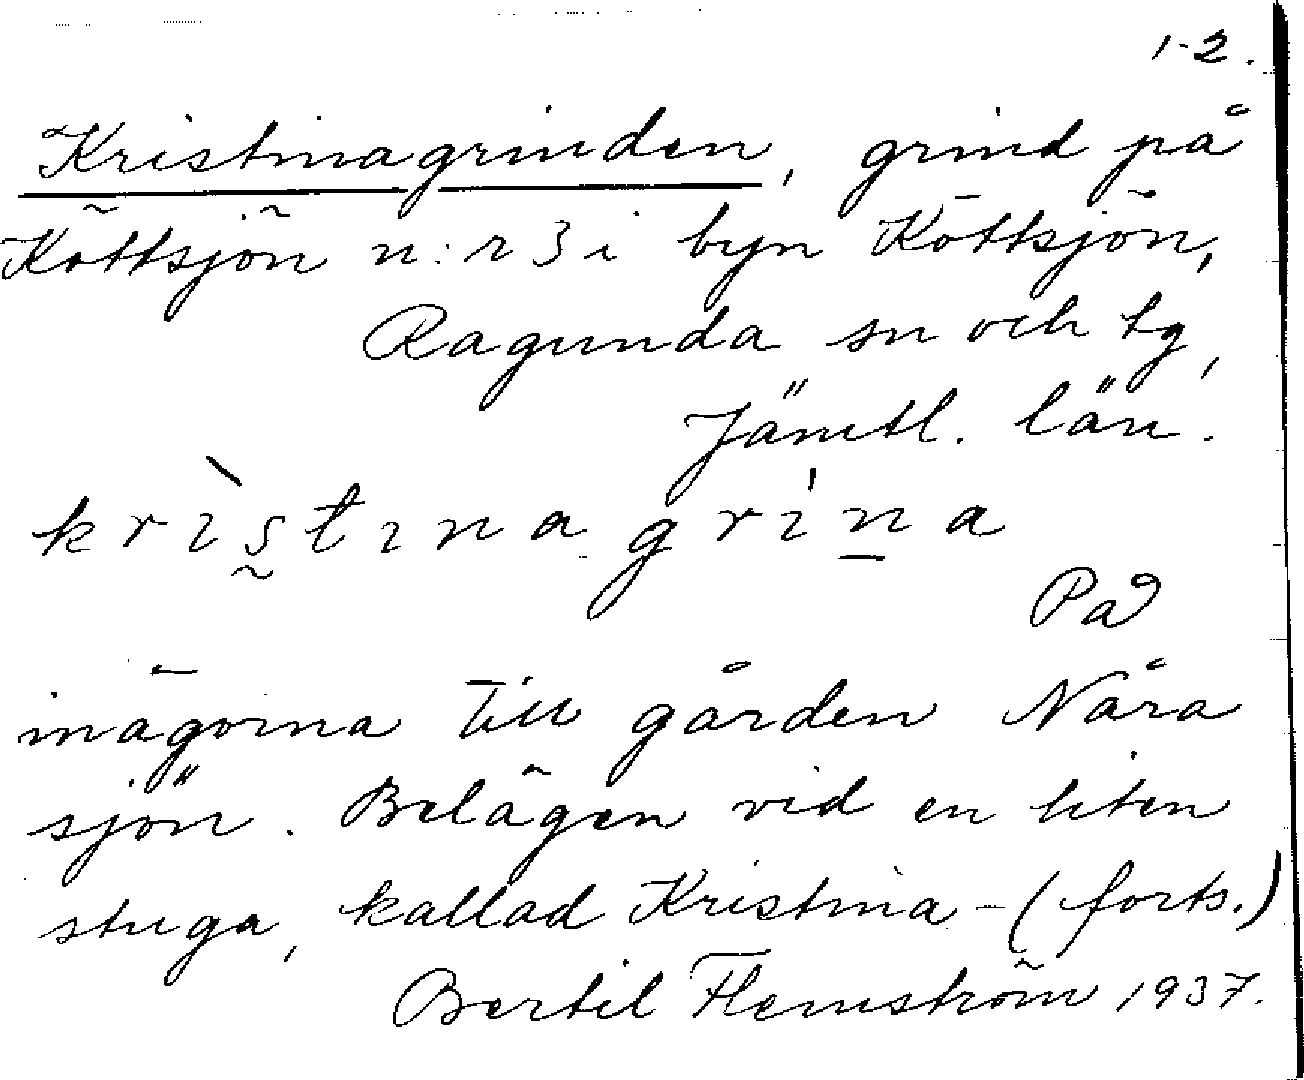 1-2.
Kristinagrinden, grind på
Köttsjön n:r 3 i byn Köttsjön,
Ragunda sn och tg,
Jämtl. län.
krìstınagrina
På
inägorna till gården Nära
sjön. Belägen vid en liten
stuga, kallad Kristina- (forts.)
Bertil Flemström 1937.